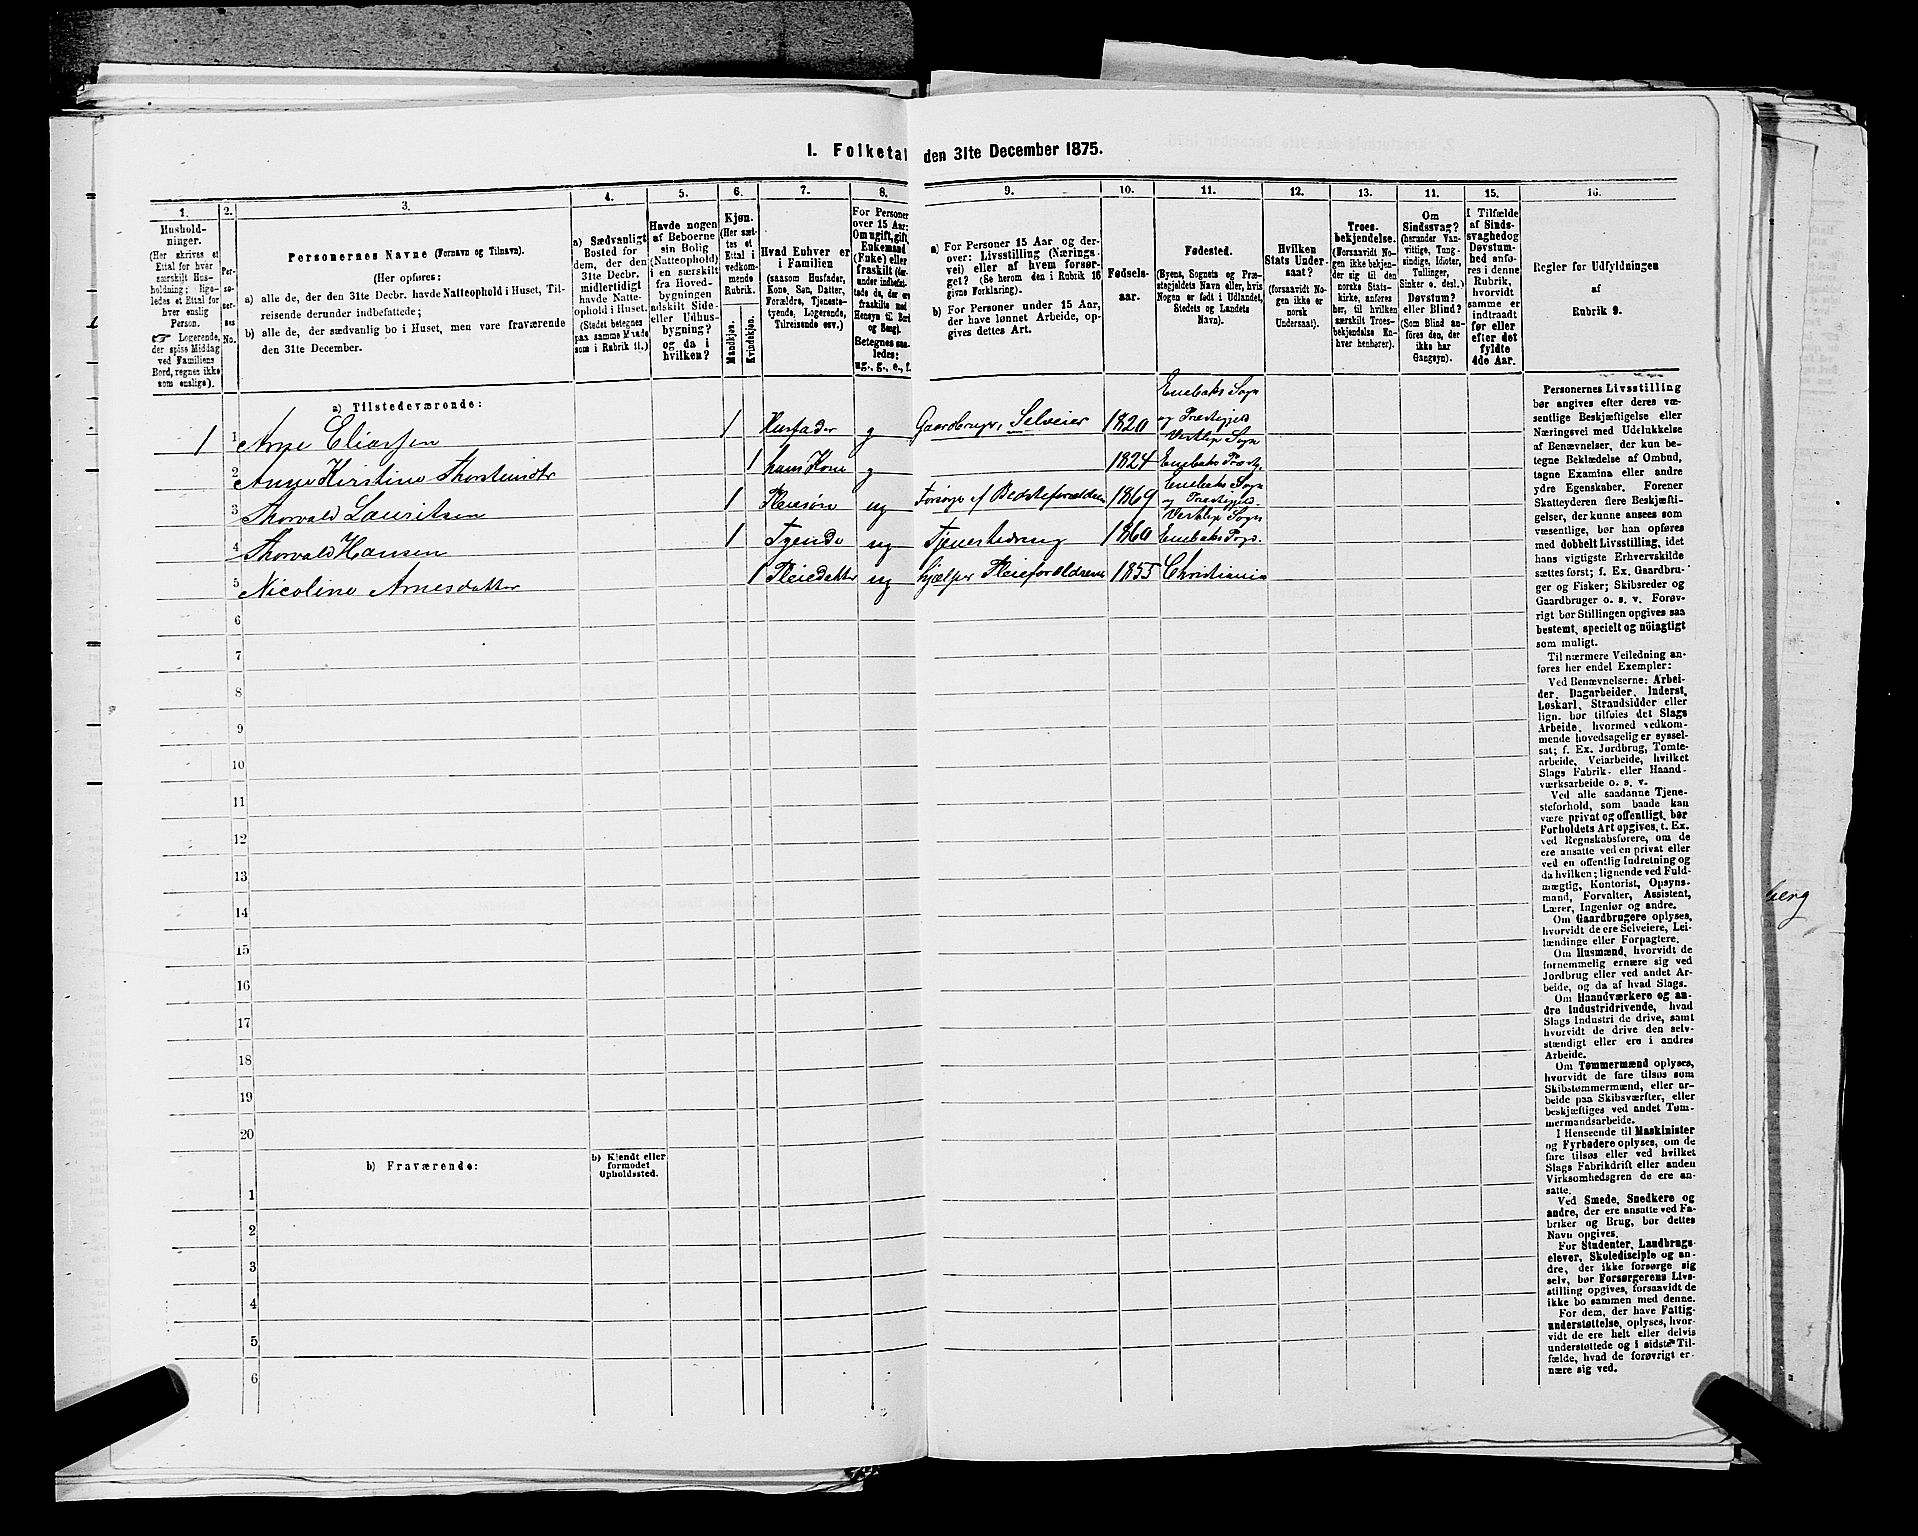 I. Folketal den 31te December 1875.
1. 2. 3. 4. 5. 6. 7. 8. 9. 10. 11. 12. 13. 11. 15. 16.
Husholdninger.
(Her skrives et
Ettal for hver
særskilt Husholdning; ligeledes et Ettal for
hver enslig
Person.
☞ Logerende,
der spise Middag
ved Familiens
Bord, regnes ikke
som enslige).
Personernes No.
Personernes Navne (Fornavn og Tilnavn).
(Her opføres:
a) alle de, der den 31te Decbr. havde Natteophold i Huset, Tilreisende derunder indbefattede;
b) alle de, der sædvanlig bo i Huset, men vare fraværende
den 31te December.
a) Sædvanligt
Bosted for
dem, der den
31te Decbr.
midlertidigt
havde Natteophold i Huset.
(Stedet betegnes
paa samme Maade
som i Rubrik 11.)
Havde nogen
af Beboerne
sin Bolig
(Natteophold)
i en særskilt
fra Hovedbygningen
adskilt Side
eller Udhusbygning?
og da i
hvilken?
Kjøn.
(Her sættes et
Ettal i
vedkommende
Rubrik.
Mandkjøn.
Kvindekjøn.
Hvad Enhver er
i Familien
(saasom Husfader,
Kone, Søn, Datter,
Forældre, Tjenestetyende, Logerende,
Tilreisende osv.)
For Personer
over 15 Aar:
Om ugift, gift,
Enkemand
(Enke) eller
fraskilt
Betegnes saaledes:
ug., g., e., f.
a) For Personer 15 Aar og derover: Livsstilling (Næringsvei) eller af hvem forsørget? (Se herom den i Rubrik 16
givne Forklaring).
b) For Personer under 15 Aar,
der have lønnet Arbeide, opgives dettes Art.
Fødselsaar.
Fødested.
(Byens, Sognets og Præstegjeldets Navn eller, hvis
Nogen er født i Udlandet,
Stedets og Landets
Navn).
Hvilken
Stats Undersaat?
(forsaavidt Nogen ikke er
norsk
Undersaat).
Troesbekjendelse.
(Forsaavidt Nogen ikke bekjender sig til den
norske Statskirke, anføres
her, til hvilken
særskilt Troesbekjendelse Enhver henhører).
Om
Sindssvag?
(herunder Vanvittige, Tungsindige, Idioter,
Tullinger,
Sinker o. desl.)
Døvstum?
eller Blind?
(Som Blind anføres den, der
ikke har
Gangsyn).
I Tilfælde
af Sindssvaghed og
Døvstumhed anføres i denne
Rubrik,
hvorvidt
samme er
indtraadt
før eller
efter det
fyldte
4de Aar.
Regler for Udfyldningen
af
Rubrik 9.
a) Tilstedeværende:
1 1 Arne Eliassen 1 Husfader g Gaardbruger, Selveier 1820 Enebaks Sogn og Præstegjeld
2 Anne Kirstine Thorstensdtr 1 hans Kone g 1824 Vestby Sogn Enebaks Præstg.
3 Thorvald Lauritsen 1 Pleiesøn ug Forsørges af Bedsteforældrene 1869 Enebaks Sogn og Præstegjeld
4 Thorvald Hansen 1 Tyende ug Tjenestedreng 1860 Enebaks Prgj.
5 Nicoline Arnesdatter 1 Pleiedatter ug hjælper Pleieforældrene 1855 Christiania
6
7
8
9
10
11
12
13
14
15
16
17
18
19
20
b) Fraværende:
b) Kjendt eller
formodet
Opholdssted.
1
2
3
4
5
6
Personernes Livsstilling
bør angives efter deres væsentlige Beskjæftigelse eller
Næringsvei med Udelukkelse
af Benævnelser, der kun betegne Beklædelse af Ombud,
tagne Examina eller andre
ydre Egenskaber. Forener
Skatteyderen flere Beskjæftigelser, der kunne ansees som
væsentlige, bør han opføres
med dobbelt Livsstilling, idet
hans vigtigste Erhvervskilde
sættes først; f. Ex. Gaardbruger og Fisker; Skibsreder og
Gaardbruger o. s. v. Forøvrigt bør Stillingen opgives saa
bestemt, specielt og nöiagtigt
som muligt.
Til nærmere Veiledning anføres her endel Exempler:
Ved Benævnelserne: Arbeider, Dagarbeider, Inderst,
Løskarl, Strandsidder eller
lign. bør tilføies det Slags
Arbeide, hvormed vedkommende hovedsagelig er sysselsat; f. Ex. Jordbrug, Tomtearbeide, Veiarbeide, hvilket
Slags Fabrik- eller Haandværksarbeide o. s. v.
Ved alle saadanne Tjenesteforhold, som baade kan
være privat og offentligt, bør
Forholdets Art opgives, t. Ex.
ved Regnskabsførere, om de
ere ansatte ved en privat eller
ved en offentlig Indretning og
da hvilken; lignende ved Fuldmægtig, Kontorist, Opsynsmand, Forvalter, Assistent,
Lærer, Ingeniør og andre.
Om Gaardbrugere oplyses,
hvorvidt de ere Selveiere, Leilændinge eller Forpagtere.
Om Husmænd, hvorvidt de
fornemmelig ernære sig ved
Jordbrug eller ved andet Arbeide, og da af hvad Slags.
Om Haandværkere og andre Industridrivende, hvad
Slags Industri de drive, samt
hvorvidt de drive den selvstændigt eller ere i andres
Arbeide.
Om Tømmermænd oplyses,
hvorvidt de fare tilsøs som
Skibstømmermænd, eller arbeide paa Skibsværfter, eller
beskjæftiges ved andet Tømmermandsarbeide.
I Henseende til Maskinister
og Fyrbødere oplyses, om de
fare tilsøs eller ved hvilket
Slags Fabrikdrift eller anden
Virksomhedsgren de ere ansatte.
Ved Smede, Snedkere og
andre, der ere ansatte ved Fabriker og Brug, bør dettes
Navn opgives.
For Studenter, Landbrugselever, Skoledisciple og andre, der ikke forsørge sig
selv, bør Forsørgerens Livsstilling opgives, forsaavidt de
ikke bo sammen med denne.
For dem, der have Fattigunderstøttelse, oplyses, hvorvidt de ere helt eller delvis
understøttede og i sidste Tilfælde, hvad de forøvrigt ernære sig ved.
berg